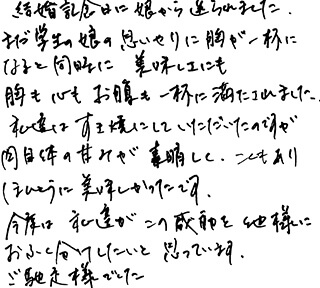 結婚記念日に娘から送られました。
まだ学生の娘の思いやりに胸が一杯に
なると同時に 美味しさにも
胸も心もお腹も一杯に満たされました。
私達はすき焼にしていただいたのですが
肉自体の甘みが素晴しく、こくもあり
ほんとうに美味しかったです。
今度は私達がこの感動を他様に
おふく分けしたいと思っています。
ご馳走様でした